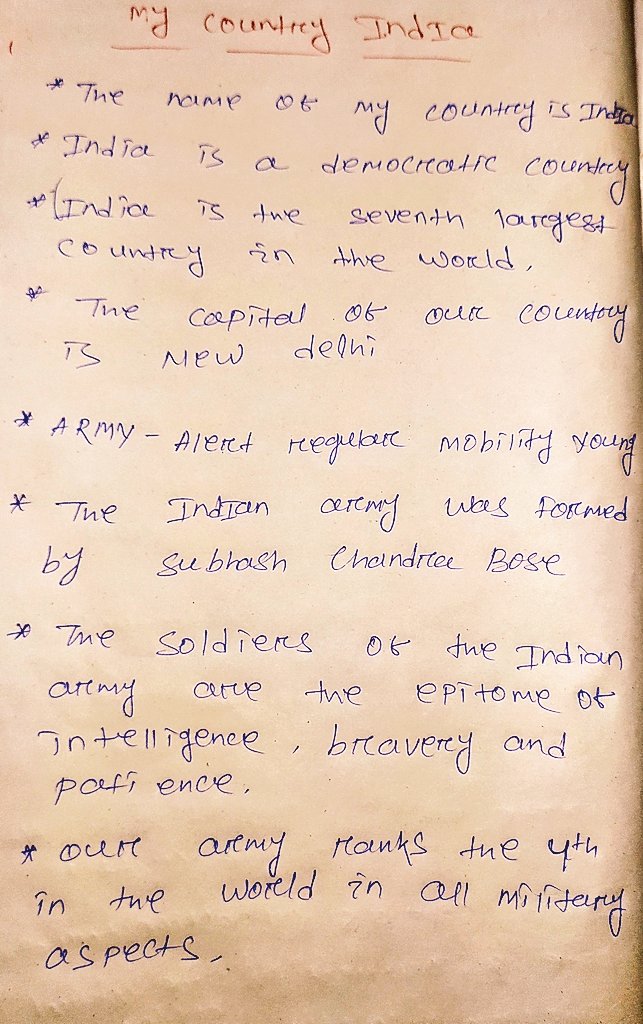 My country India
* The name of my country is India
* India is a democratic country
* India is the seventh largest
country in the world.
* The capital of our country
is New delhi
* ARMY - Alert regular mobility young
* The Indian army was formed
by subhash Chandra Bose
* The soldiers of the Indian
army are the epitome of
intelligence, bravery and
patience.
* our army ranks the 4th
in the world in all military
aspects.